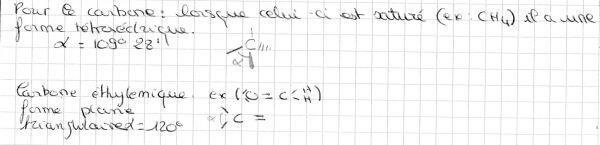 Pour le carbone : lorsque celui-ci est saturé (ex : CH4) il a une
forme tétraédrique.
α = 109° 28'
C
α
Carbone éthylenique ex (O = C < H H)
forme plane
triangulaire α = 120° α C =